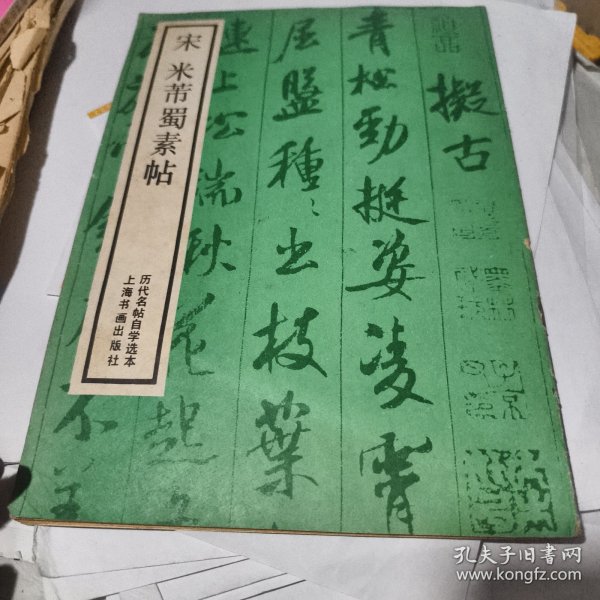 宋 米芾蜀素帖
历代名帖自学选本
上海书画出版社
擬古
青松勁挺姿凌霄
屈盤種〻出枝葉
連上松端秋花起
不羊
孔夫子旧书网
www.kongfz.com